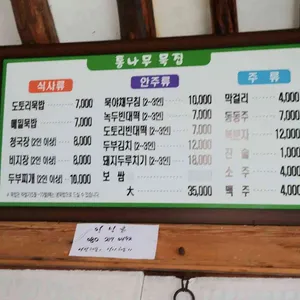 통나무묵집
식사류
도토리묵밥 7,000
메밀묵밥 7,000
청국장 [2인 이상] 8,000
비지장 [2인 이상] 8,000
두부찌개 [2인 이상] 10,000
안주류
묵야채무침 [2~3인] 10,000
녹두빈대떡 [2~3인] 7,000
도토리빈대떡 [2~3인] 7,000
두부김치 [2~3인] 12,000
돼지두루치기 [2~3인] 18,000
보쌈
大 35,000
주류
막걸리 4,000
동동주 7,000
복분자 12,000
잔술 1,000
소주 4,000
맥주 4,000